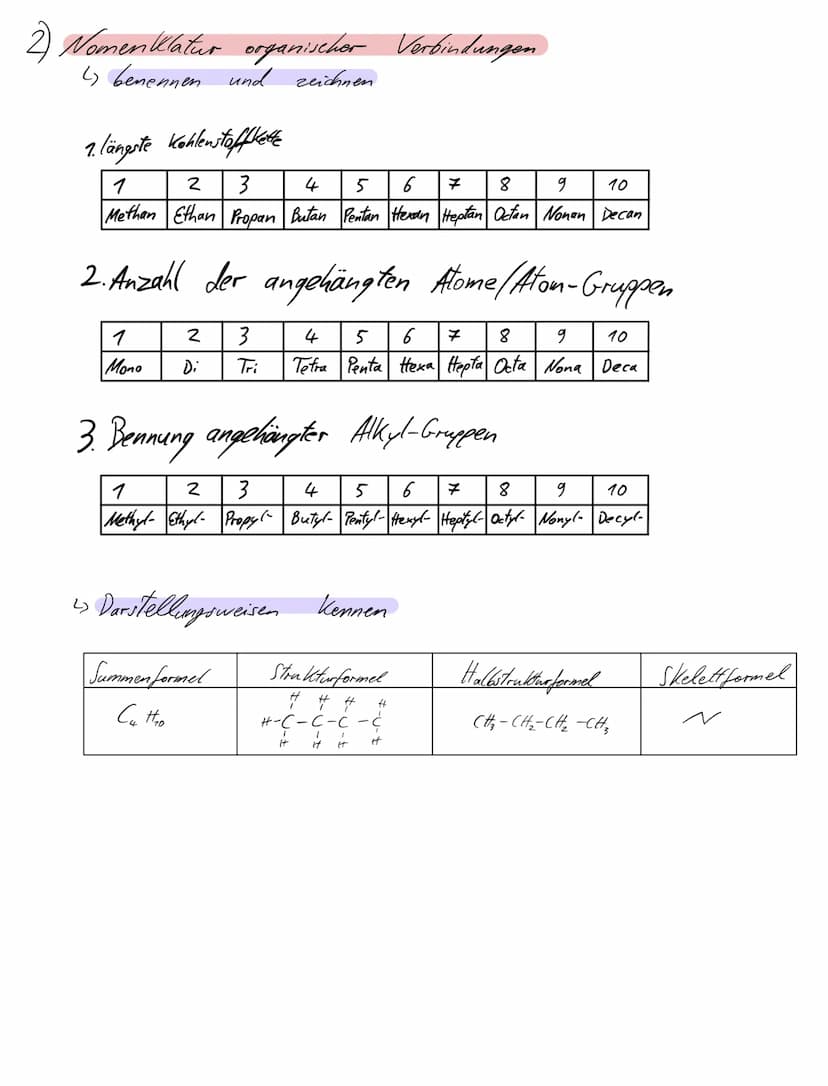 2) Nomenklatur organischer Verbindungen
↳ benennen und zeichnen
1. längste Kohlenstoffkette
1 2 3 4 5 6 7 8 9 10
Methan Ethan Propan Butan Pentan Hexan Heptan Octan Nonan Decan
2. Anzahl der angehängten Atome/Atom-Gruppen
1 2 3 4 5 6 7 8 9 10
Mono Di Tri Tetra Penta Hexa Hepta Octa Nona Deca
3. Bennung angehängter Alkyl-Gruppen
1 2 3 4 5 6 7 8 9 10
Methyl- Ethyl- Propyl- Butyl- Pentyl- Hexyl- Heptyl- Octyl- Nonyl- Decyl-
↳ Darstellungsweisen kennen
Summenformel Strukturformel Halbstrukturformel Skelettformel
H H H H
C₄H₁₀ H-C-C-C-C CH₃-CH₂-CH₂-CH₃
H H H H